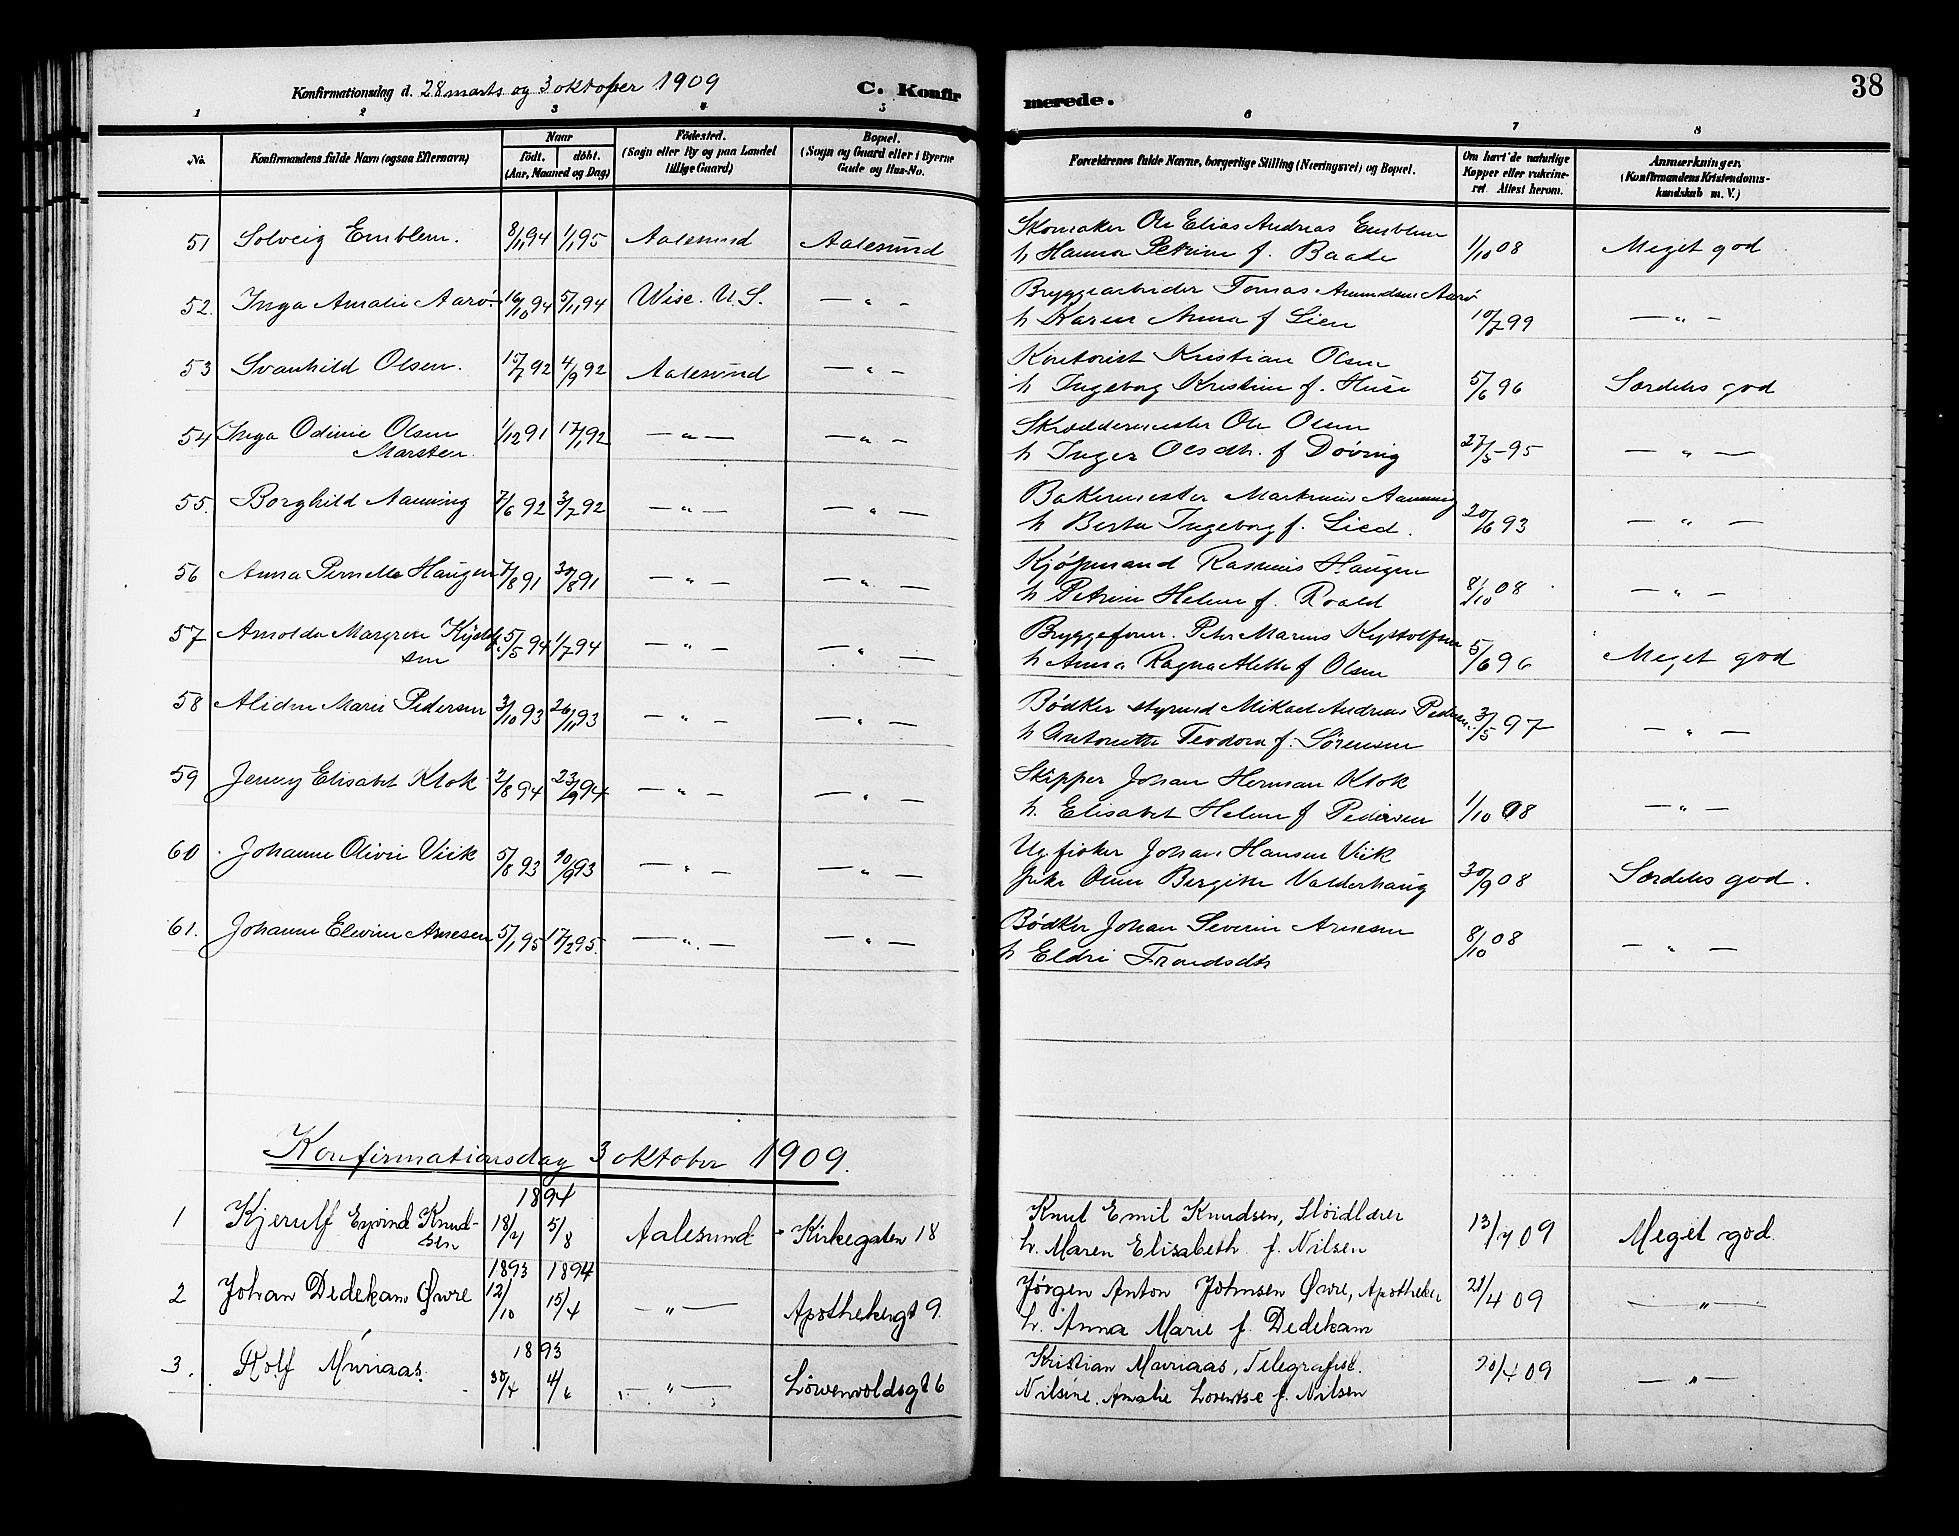 38
Konfirmationsdag d. 28 marts og 3 oktober 1909
C. Konfirmerede.
1 2 3 4 5 6 7 8
No.
Konfirmandens fulde Navn (ogsaa Efternavn)
Naar
födt. döbt.
(Aar, Maaned og Dag)
Födested.
(Sogn eller By og paa Landet
tillige Gaard)
Bopæl.
(Sogn og Gaard eller i Byerne
Gade og Hus-No.
Forældrenes fulde Navne, borgerlige Stilling (Næringsvei) og Bopæl.
Om havt de naturlige
Kopper eller vaccine-
ret. Attest herom.
Anmærkninger.
(Konfirmandens Kristendoms-
kundskab m. V.)
51 Solveig Emblem. 8/11 94 1/1 95 Aalesund Aalesund Skomaker Ole Elias Andreas Emblem
h Hanna Petrine f. Baade 1/10 08 Meget god
52. Inga Amalie Aarö. 16/10 94 5/11 94 Wisc. U.S. — " — Bryggearbeider Tomas Amundsen Aarö
h Karen Anna f Lien 10/7 99 — " —
53 Svanhild Olsen. 15/7 92 4/9 92 Aalesund — " — Kontorist Kristian Olsen
h Ingeborg Kristine f. Huse 5/6 96 Særdeles god
54 Inga Odinie Olsen 1/12 91 17/1 92 — " — — " — Skræddermester Ole Olsen
Marsten. h Inger Olsdtr. f Döving 27/5 95 — " —
55. Borghild Aanning 7/6 92 3/7 92 — " — — " — Bakermester Martinus Aanning
h Berta Ingeborg f. Lied. 20/6 93 — " —
56 Anna Pernella Haugen 7/8 91 30/8 91 — " — — " — Kjöpmand Rasmus Haugen
h Petrine Helene f. Roald 8/10 08 — " —
57 Arnolda Margrete 5/5 94 1/7 94 — " — — " — Bryggeform. Peter Marius Kystolfsen
sen h Anna Ragna Alette f Olsen 5/6 96 Meget god
58 Alidne Marie Pedersen 3/10 93 26/11 93 — " — — " — Bödker styrmd Mikael Andreas Pedersen
h Antonette Teodora f. Sörensen 3/5 97 — " —
59 Jenny Elisabet Klok 2/8 94 23/9 94 — " — — " — Skipper Johan Herman Klok
h. Elisabet Helene f Pedersen 1/10 08 — " —
60. Johanne Olivie Viik 5/8 93 10/9 93 — " — — " — Ug. fisker Johan Hansen Viik
Pike Oline Bergitte Valderhaug 30/9 08 Særdeles god.
61. Johanne Elevine Arnesen 5/1 95 17/2 95. — " — — " — Bödker Johan Severin Arnesen
h Eldri Trondsdtr 8/10 08 — " —
Konfirmationsdag 3 oktober 1909.
1894
1 Kjerulf Eyvind Knud- 18/4 5/8 Aalesund Kirkegaten 18 Knut Emil Knudsen, Slöidlærer
sen h. Maren Elisabeth f. Nilsen 13/4 09 Meget god.
1893 1894
2 Johan Dedekam Övre 12/10 15/4 — " — Apothekergt 9. Jörgen Anton Johnsen Övre, Apotheker
h. Anna Marie f. Dedekam 21/4 09 — " —
1893
3. Rolf Muriaas. 30/4 4/6 — " — Löwenvoldsgt 6 Kristian Muriaas, Telegrafist.
Nilsine Amalie Lorentse f. Nilsen 20/4 09 — " —